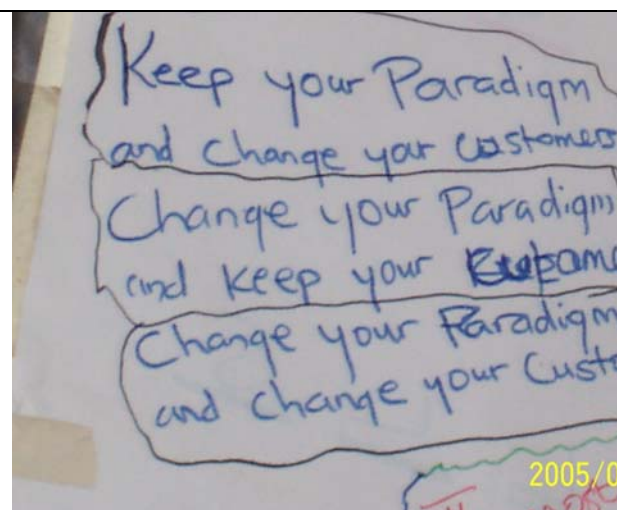 Keep your Paradigm
and change your customers
Change your Paradigm
and keep your
Change your Paradigm
and change your Cust
2005/0